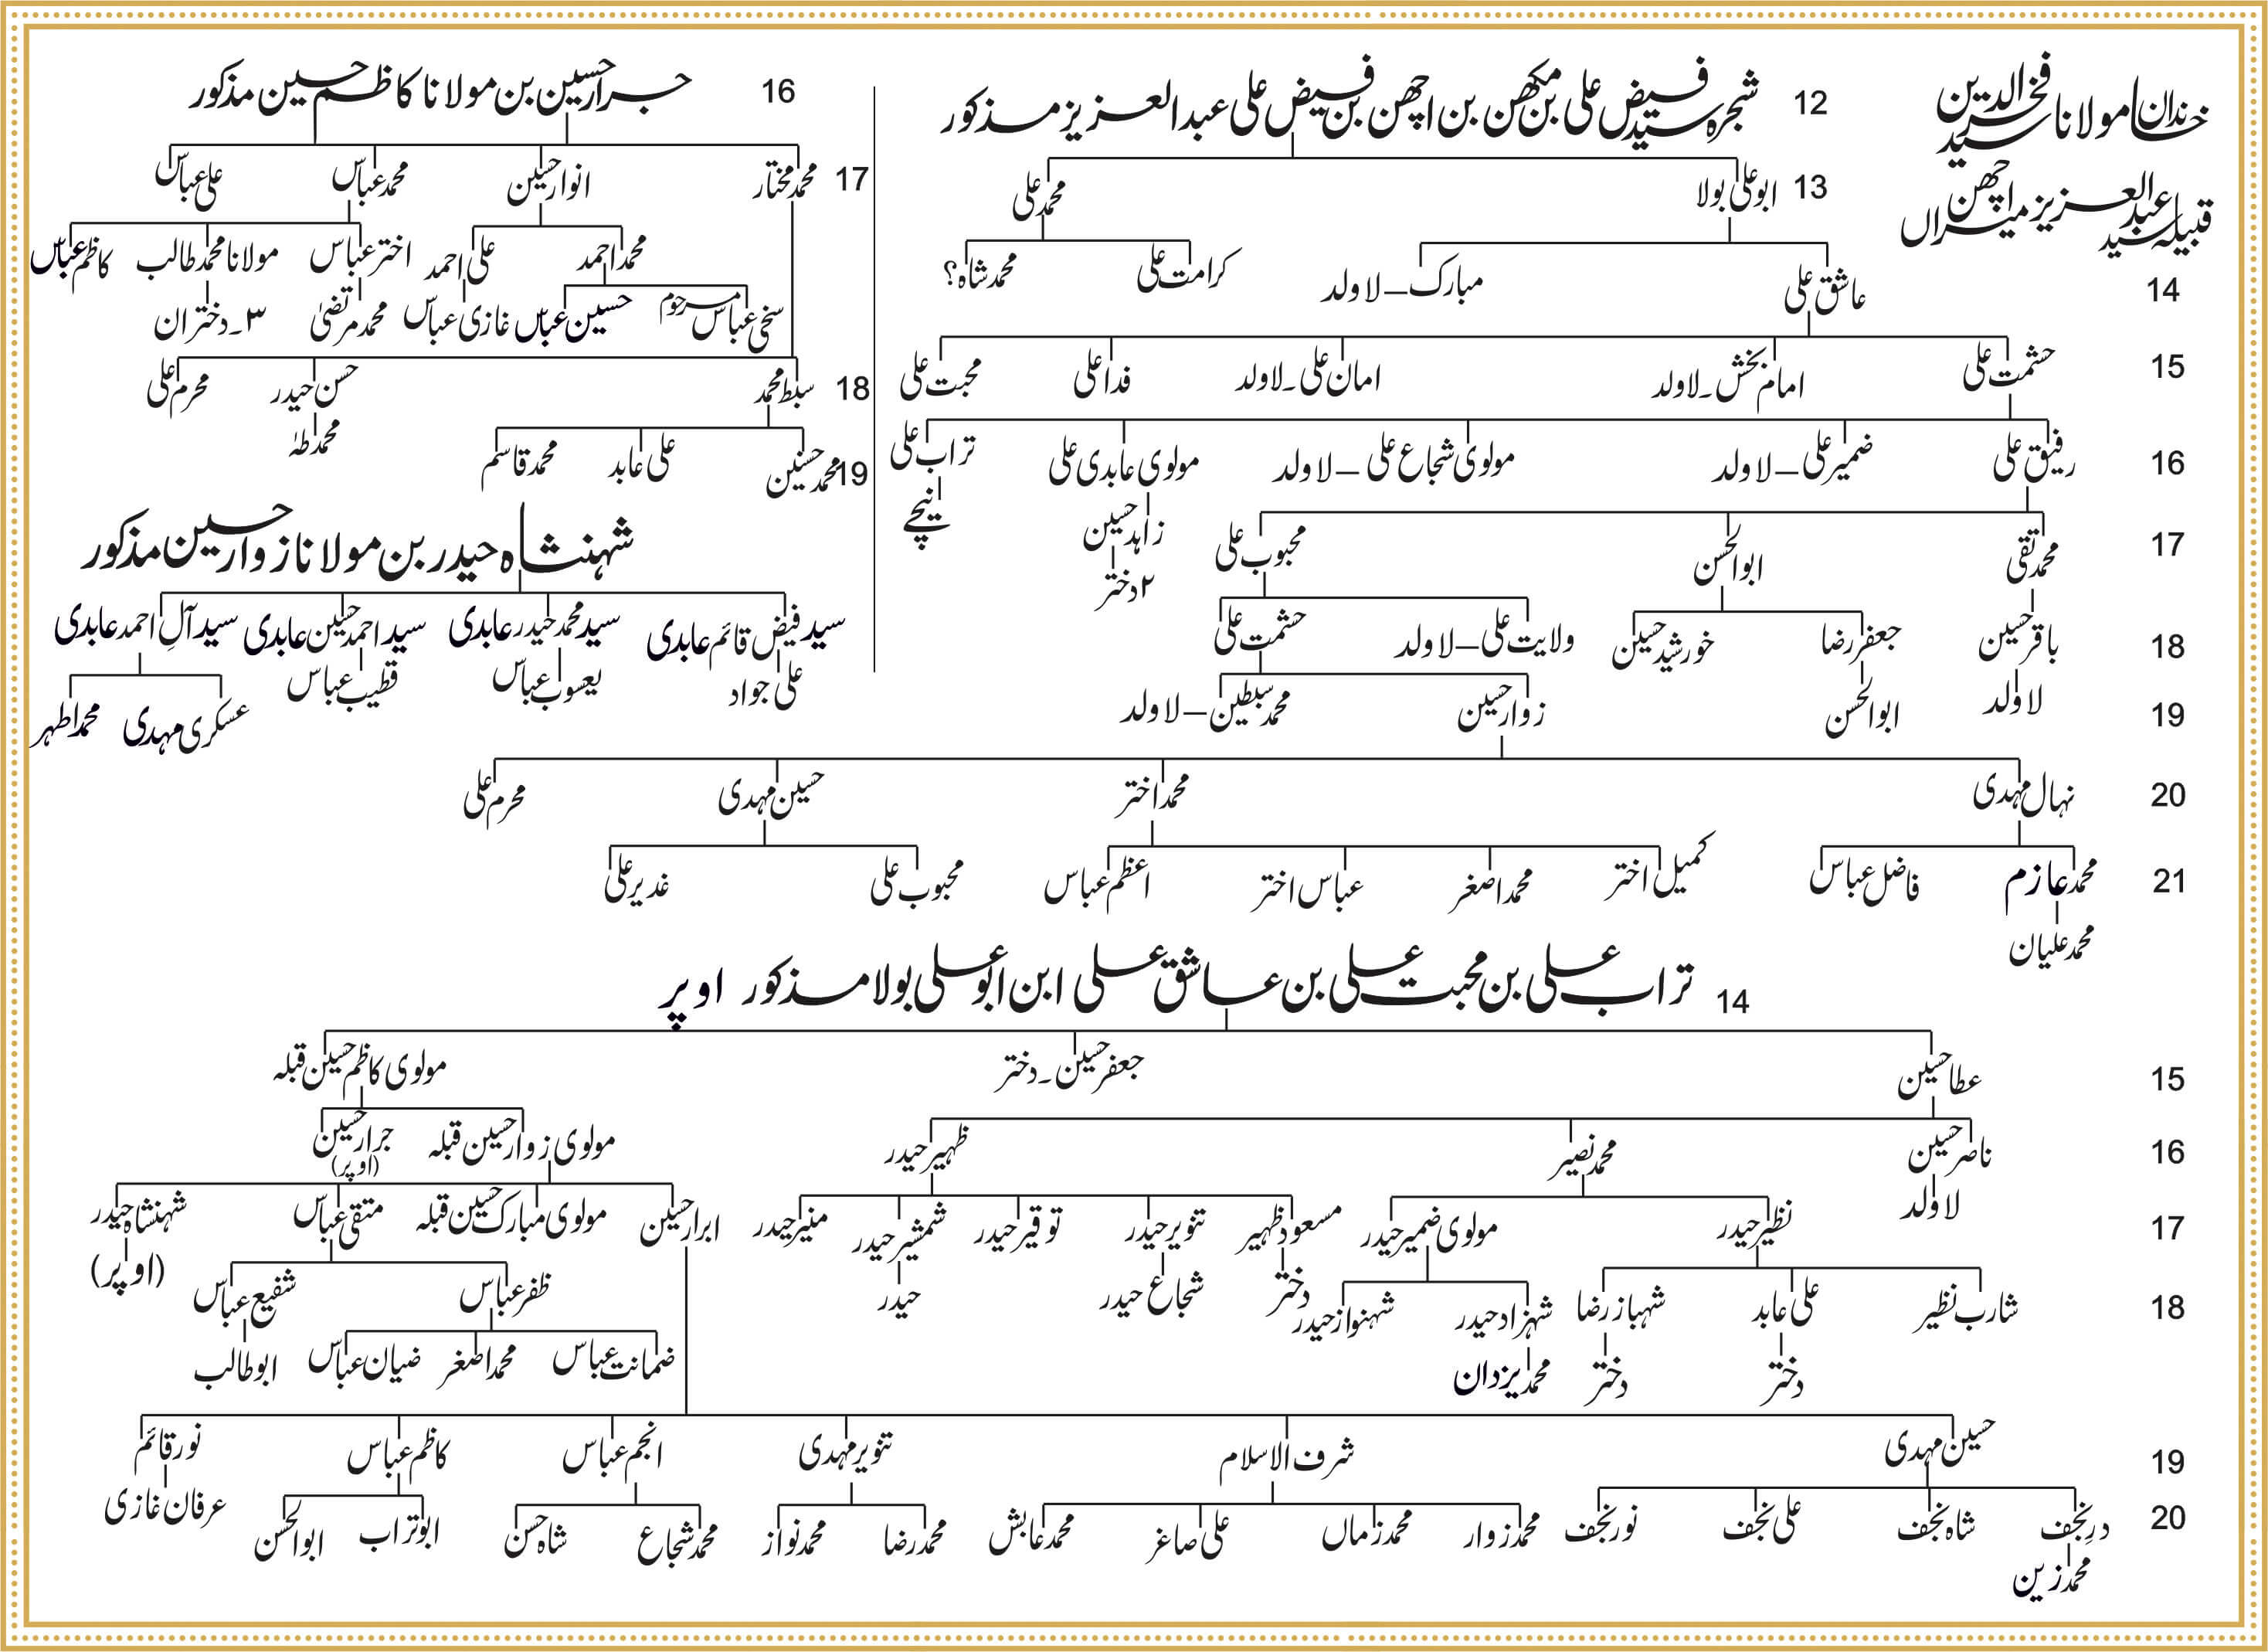 خاندان مولانا سید فخرالدین
قبیلہ سید عبدالعزیز اچھن میراں
12 شجرہ سید فیض علی بن مکھن بن اچھن بن فیض علی عبدالعزیز مذکور
13 ابو علی بولا محمد علی
عاشق علی مبارک – لاولد کرامت علی محمد شاہ؟
14
15 حشمت علی امام بخش ۔ لاولد امان علی ۔ لاولد فدا علی محبت علی
16 رفیق علی ضمیر علی – لاولد مولوی شجاع علی – لاولد مولوی عابدی علی تراب علی
زاہد حسین نیچے
17 محمد تقی ابوالحسن محبوب علی
۲ دختر
18 باقر حسین جعفر رضا خورشید حسین ولایت علی – لاولد حشمت علی
19 لاولد ابوالحسن زوار حسین محمد سبطین – لاولد
20 نہال مہدی محمد اختر حسین مہدی محرم علی
21 محمد عازم فاضل عباس کمیل اختر محمد اصغر عباس اختر اعظم عباس محبوب علی غدیر علی
محمد علیان
16 جرار حسین بن مولانا کاظم حسین مذکور
17 محمد مختار انوار حسین محمد عباس علی عباس
محمد احمد علی احمد اختر عباس مولانا محمد طالب کاظم عباس
سخی عباس مرحوم حسین عباس غازی عباس محمد مرتضیٰ ۳۔ دختران
18 سبط محمد حسن حیدر محرم علی
محمد طہٰ
19 محمد حسنین علی عابد محمد قاسم
شہنشاہ حیدر بن مولانا زوار حسین مذکور
سید فیض قائم عابدی سید محمد حیدر عابدی سید احمد حسین عابدی سید آلِ احمد عابدی
علی جواد یعسوب عباس قطیب عباس
عسکری مہدی محمد اطہر
14 تراب علی بن محبت علی بن عاشق علی ابن ابو علی بولا مذکور اوپر
15 عطا حسین جعفر حسین ۔ دختر مولوی کاظم حسین قبلہ
16 ناصر حسین محمد نصیر ظہیر حیدر مولوی زوار حسین قبلہ جرار حسین
(اوپر)
17 لاولد نظیر حیدر مولوی ضمیر حیدر مسعود ظہیر تنویر حیدر توقیر حیدر شمشیر حیدر منیر حیدر ابرار حسین مولوی مبارک حسین قبلہ متقی عباس شہنشاہ حیدر
(اوپر)
18 شارب نظیر علی عابد شہباز رضا شہزاد حیدر شہنواز حیدر دختر شجاع حیدر حیدر ظفر عباس شفیع عباس
دختر دختر محمد یزدان ضمانت عباس محمد اصغر ضیان عباس ابوطالب
19 حسین مہدی شرف الاسلام تنویر مہدی انجم عباس کاظم عباس نور قائم
20 در نجف شاہ نجف علی نجف نور نجف محمد زوار محمد زماں علی صاغر محمد عابش محمد رضا محمد نواز محمد شجاع شاہ حسن ابوتراب ابوالحسن عرفان غازی
محمد زین